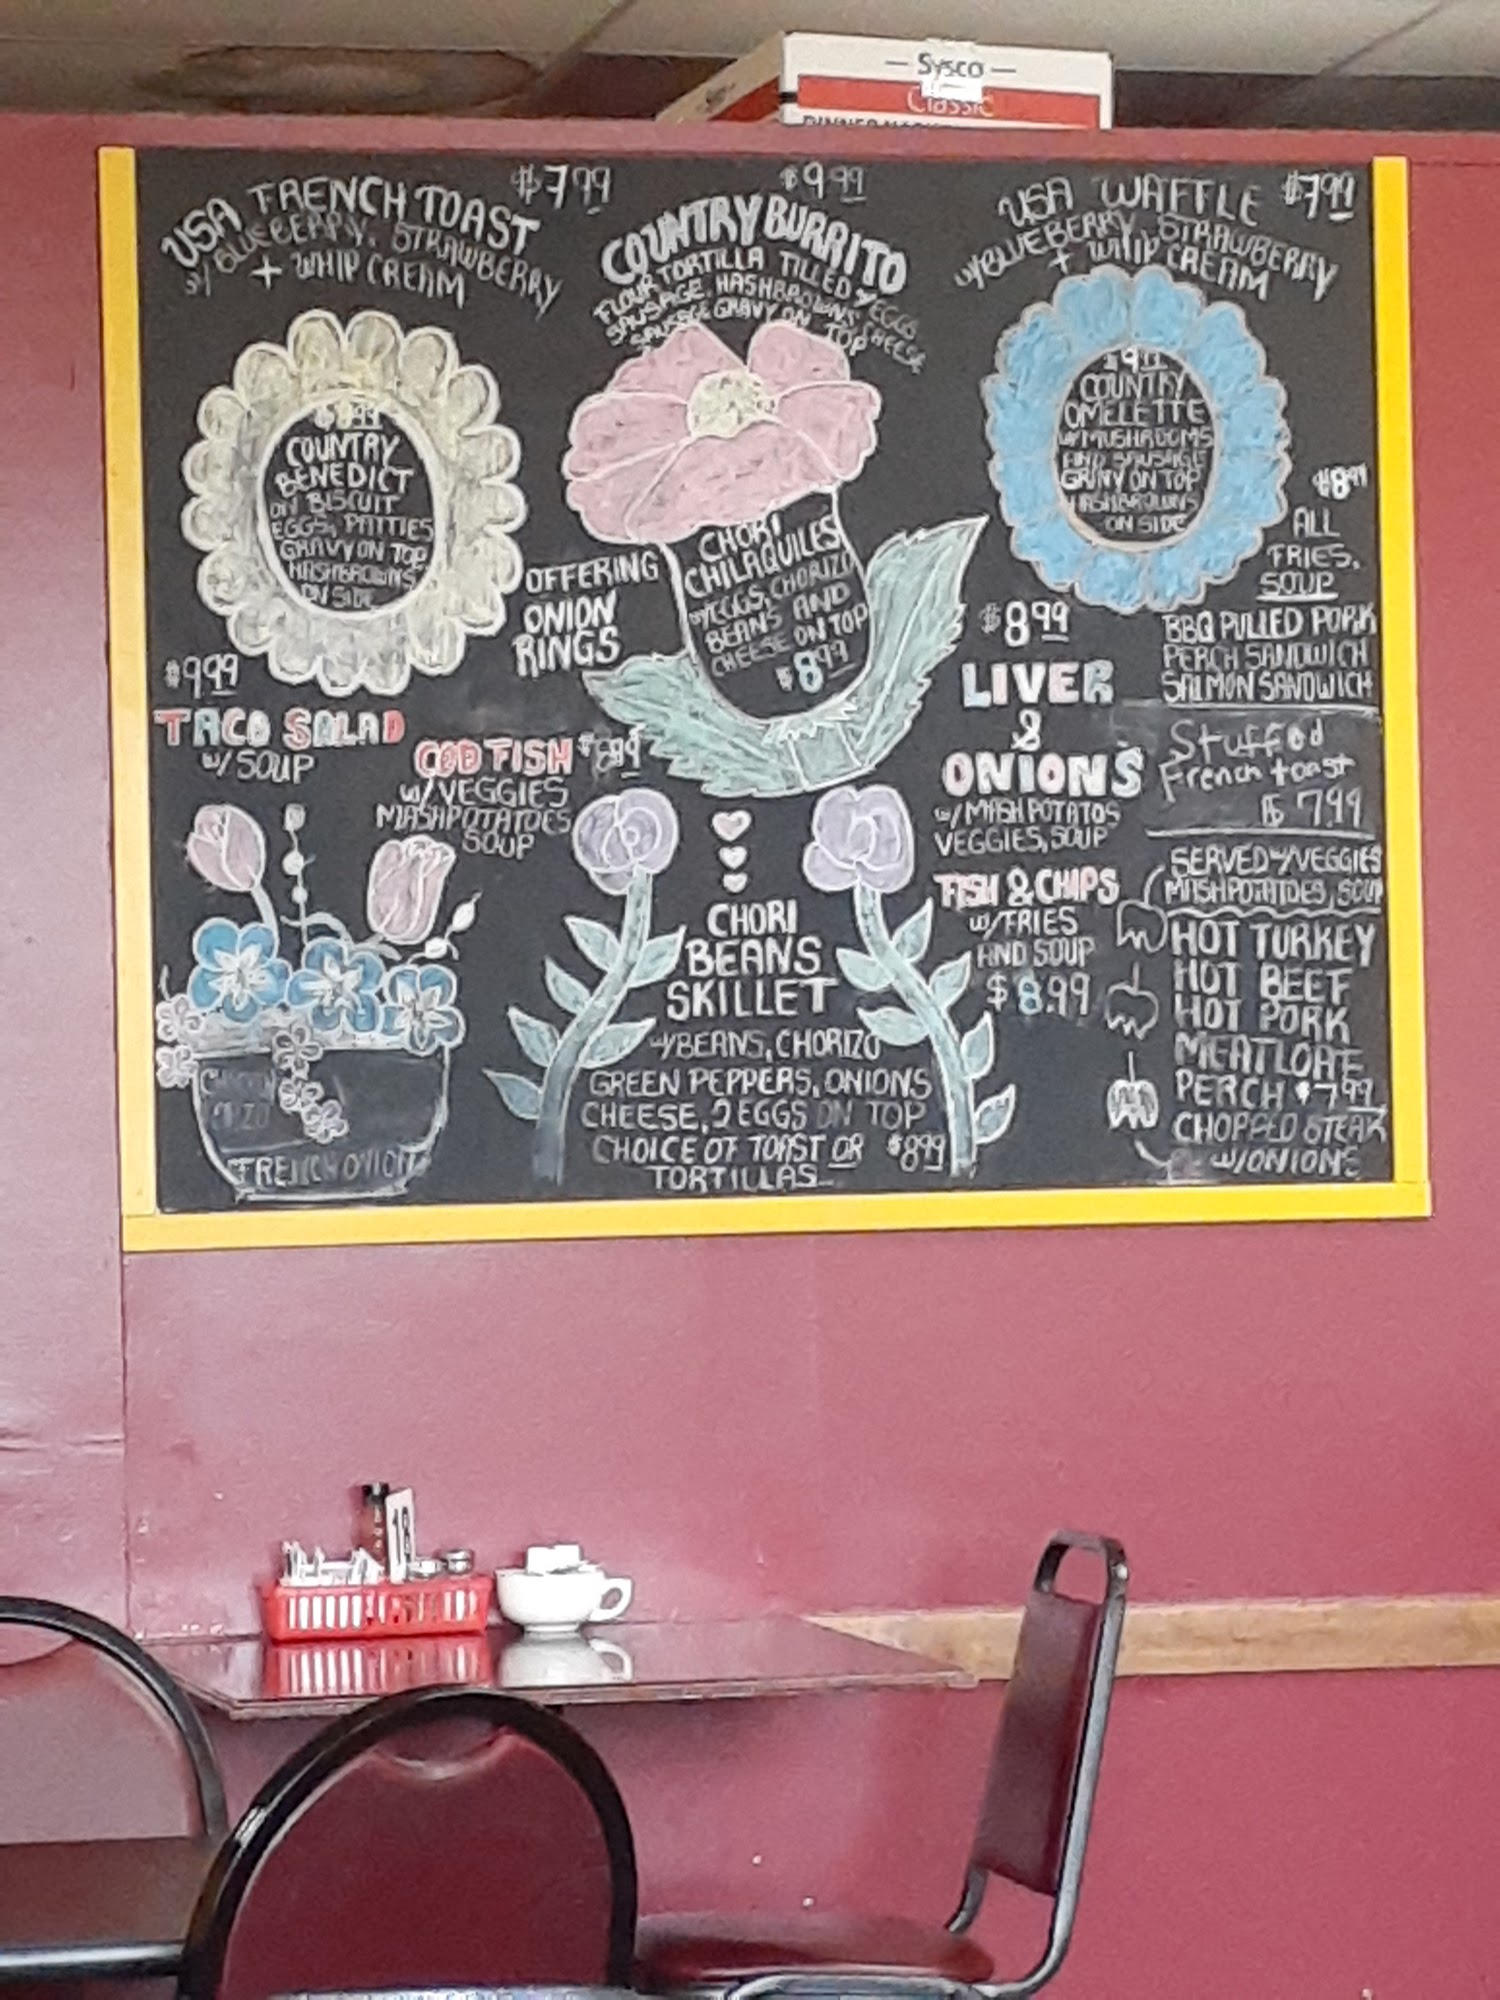 — Sysco —
Classic
$7.99
USA FRENCH TOAST
w/ BLUEBERRY, STRAWBERRY
+ WHIP CREAM
$9.99
COUNTRY BURRITO
FLOUR TORTILLA FILLED w/EGGS
SAUSAGE, HASHBROWNS, CHEESE
SAUSAGE GRAVY ON TOP
USA WAFFLE $7.99
w/BLUEBERRY, STRAWBERRY
+ WHIP CREAM
COUNTRY
BENEDICT
ON BISCUIT
EGGS, PATTIES
GRAVY ON TOP
HASHBROWNS
ON SIDE
$9.99
COUNTRY
OMELETTE
w/MUSHROOMS
AND SAUSAGE
GRAVY ON TOP
HASHBROWNS
ON SIDE
OFFERING
ONION
RINGS
CHORI
CHILAQUILES
w/EGGS, CHORIZO
BEANS AND
CHEESE ON TOP
$8.99
$8.99
ALL
FRIES,
SOUP
BBQ PULLED PORK
PERCH SANDWICH
SALMON SANDWICH
$9.99
TACO SALAD
w/ SOUP
COD FISH $8.99
w/VEGGIES
MASHPOTATOES
SOUP
$8.99
LIVER
&
ONIONS
w/MASHPOTATOS
VEGGIES, SOUP
Stuffed
French toast
$ 7.99
FISH & CHIPS
w/FRIES
AND SOUP
$8.99
SERVED w/VEGGIES
MASHPOTATOES, SOUP
HOT TURKEY
HOT BEEF
HOT PORK
MEATLOAF
PERCH $7.99
CHOPPED STEAK
w/ONIONS
CHORI
BEANS
SKILLET
w/BEANS, CHORIZO
GREEN PEPPERS, ONIONS
CHEESE, 2 EGGS ON TOP
CHOICE OF TOAST OR $8.99
TORTILLAS
CHICKEN
ORZO
FRENCH ONION
18